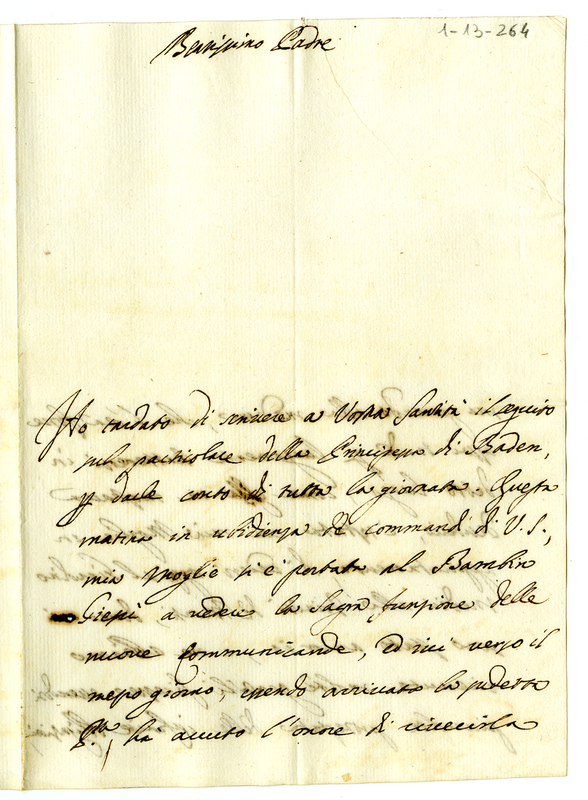 1-13-264
Beatissimo Padre
Ho tardato di scrivere a Vostra Santità il seguito
sul particolare della Principessa di Baden,
p darle conto di tutta la giornata. Questa
matina in ubidienza de commandi di V. S.,
mia Moglie si è portata al Bambin
Giesù a vedere la Sagra funzione delle
nuove Communicande, ed ivi verso il
mezzo giorno, essendo arrivata la sudetta
P.ssa, ha avuto l'onore di riceverla